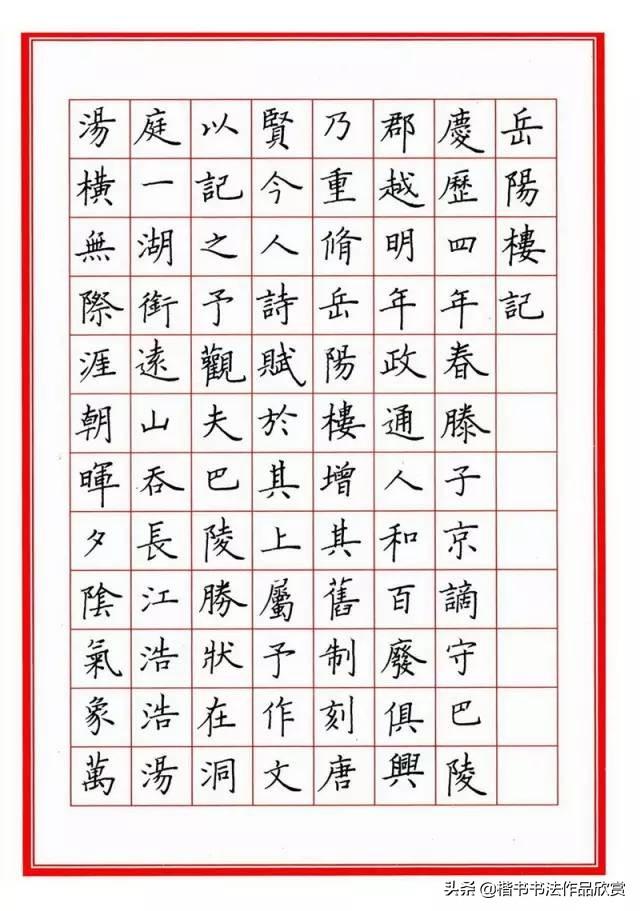 岳陽樓記
慶歷四年春滕子京謫守巴陵
郡越明年政通人和百廢俱興
乃重脩岳陽樓增其舊制刻唐
賢今人詩賦於其上屬予作文
以記之予觀夫巴陵勝狀在洞
庭一湖銜遠山吞長江浩浩湯
湯橫無際涯朝暉夕陰氣象萬
头条 @楷书书法作品欣赏